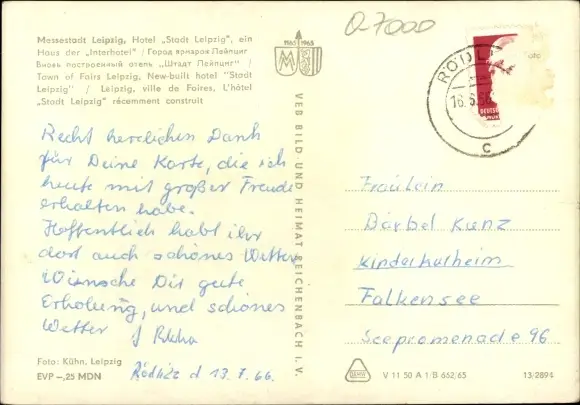 Messestadt Leipzig, Hotel „Stadt Leipzig", ein
Haus der „Interhotel" / Город ярмарок Лейпциг
Вновь построенный отель „Штадт Лейпциг" /
Town of Fairs Leipzig, New-built hotel "Stadt
Leipzig" / Leipzig, ville de Foires, L'hôtel
„Stadt Leipzig" récemment construit
1165 1965
O-7000
RÖDL
16.5.66
c
DEUTSCHE
Recht herzlichen Dank
für Deine Karte, die ich
heute mit großer Freude
erhalten habe.
Hoffentlich habt ihr
dort auch schönes Wetter
Wünsche Dir gute
Erholung, und schönes
Wetter
Rödlitz d 13.7.66.
VEB BILD UND HEIMAT REICHENBACH I. V.
Fräulein
Bärbel Kunz
Kinderkurheim
Falkensee
Seepromenade 96
Foto: Kühn, Leipzig
EVP –,25 MDN
V 11 50 A 1/B 652/65
13/2894